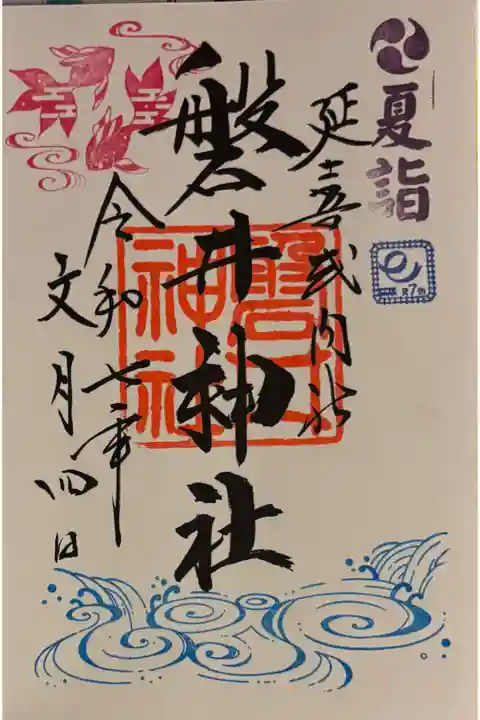 夏詣
延喜式内社
磐井神社
磐井
神社
令和七年
文月四日